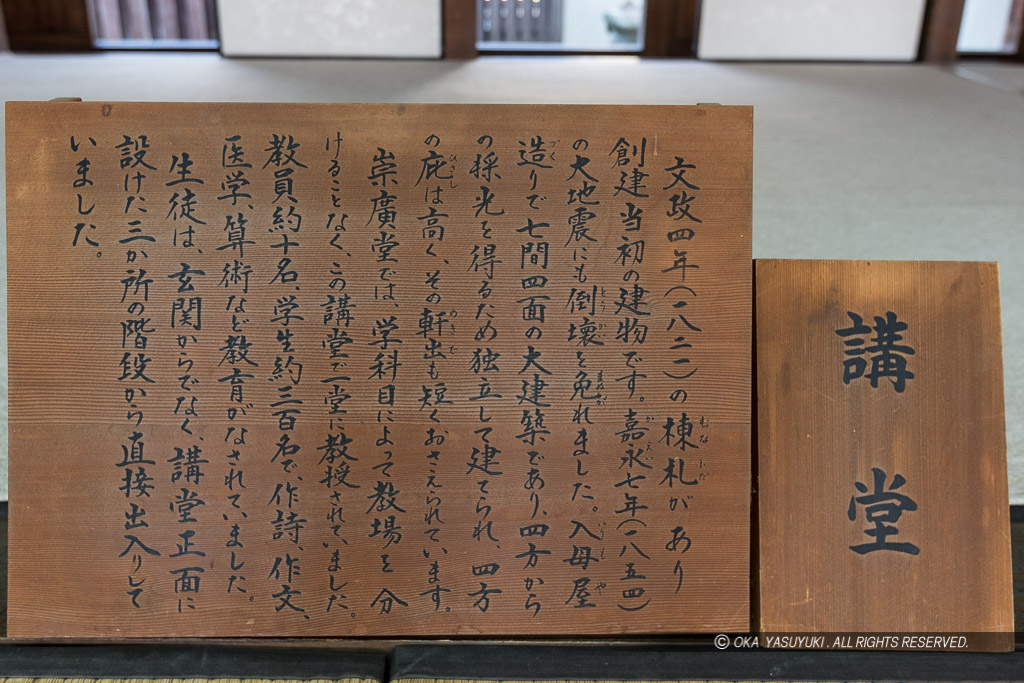 講堂
文政四年(一八二一)の棟札があり
創建当初の建物です。嘉永七年(一八五四)
の大地震にも倒壊を免れました。入母屋
造りで七間四面の大建築であり、四方から
の採光を得るため独立して建てられ、四方
の庇は高く、その軒出も短くおさえられています。
崇廣堂では、学科目によって教場を分
けることなく、この講堂で一堂に教授されていました。
教員約十名、学生約三百名で、作詩、作文、
医学、算術など教育がなされていました。
生徒は、玄関からでなく、講堂正面に
設けた三か所の階段から直接出入りして
いました。
© OKA YASUYUKI. ALL RIGHTS RESERVED.